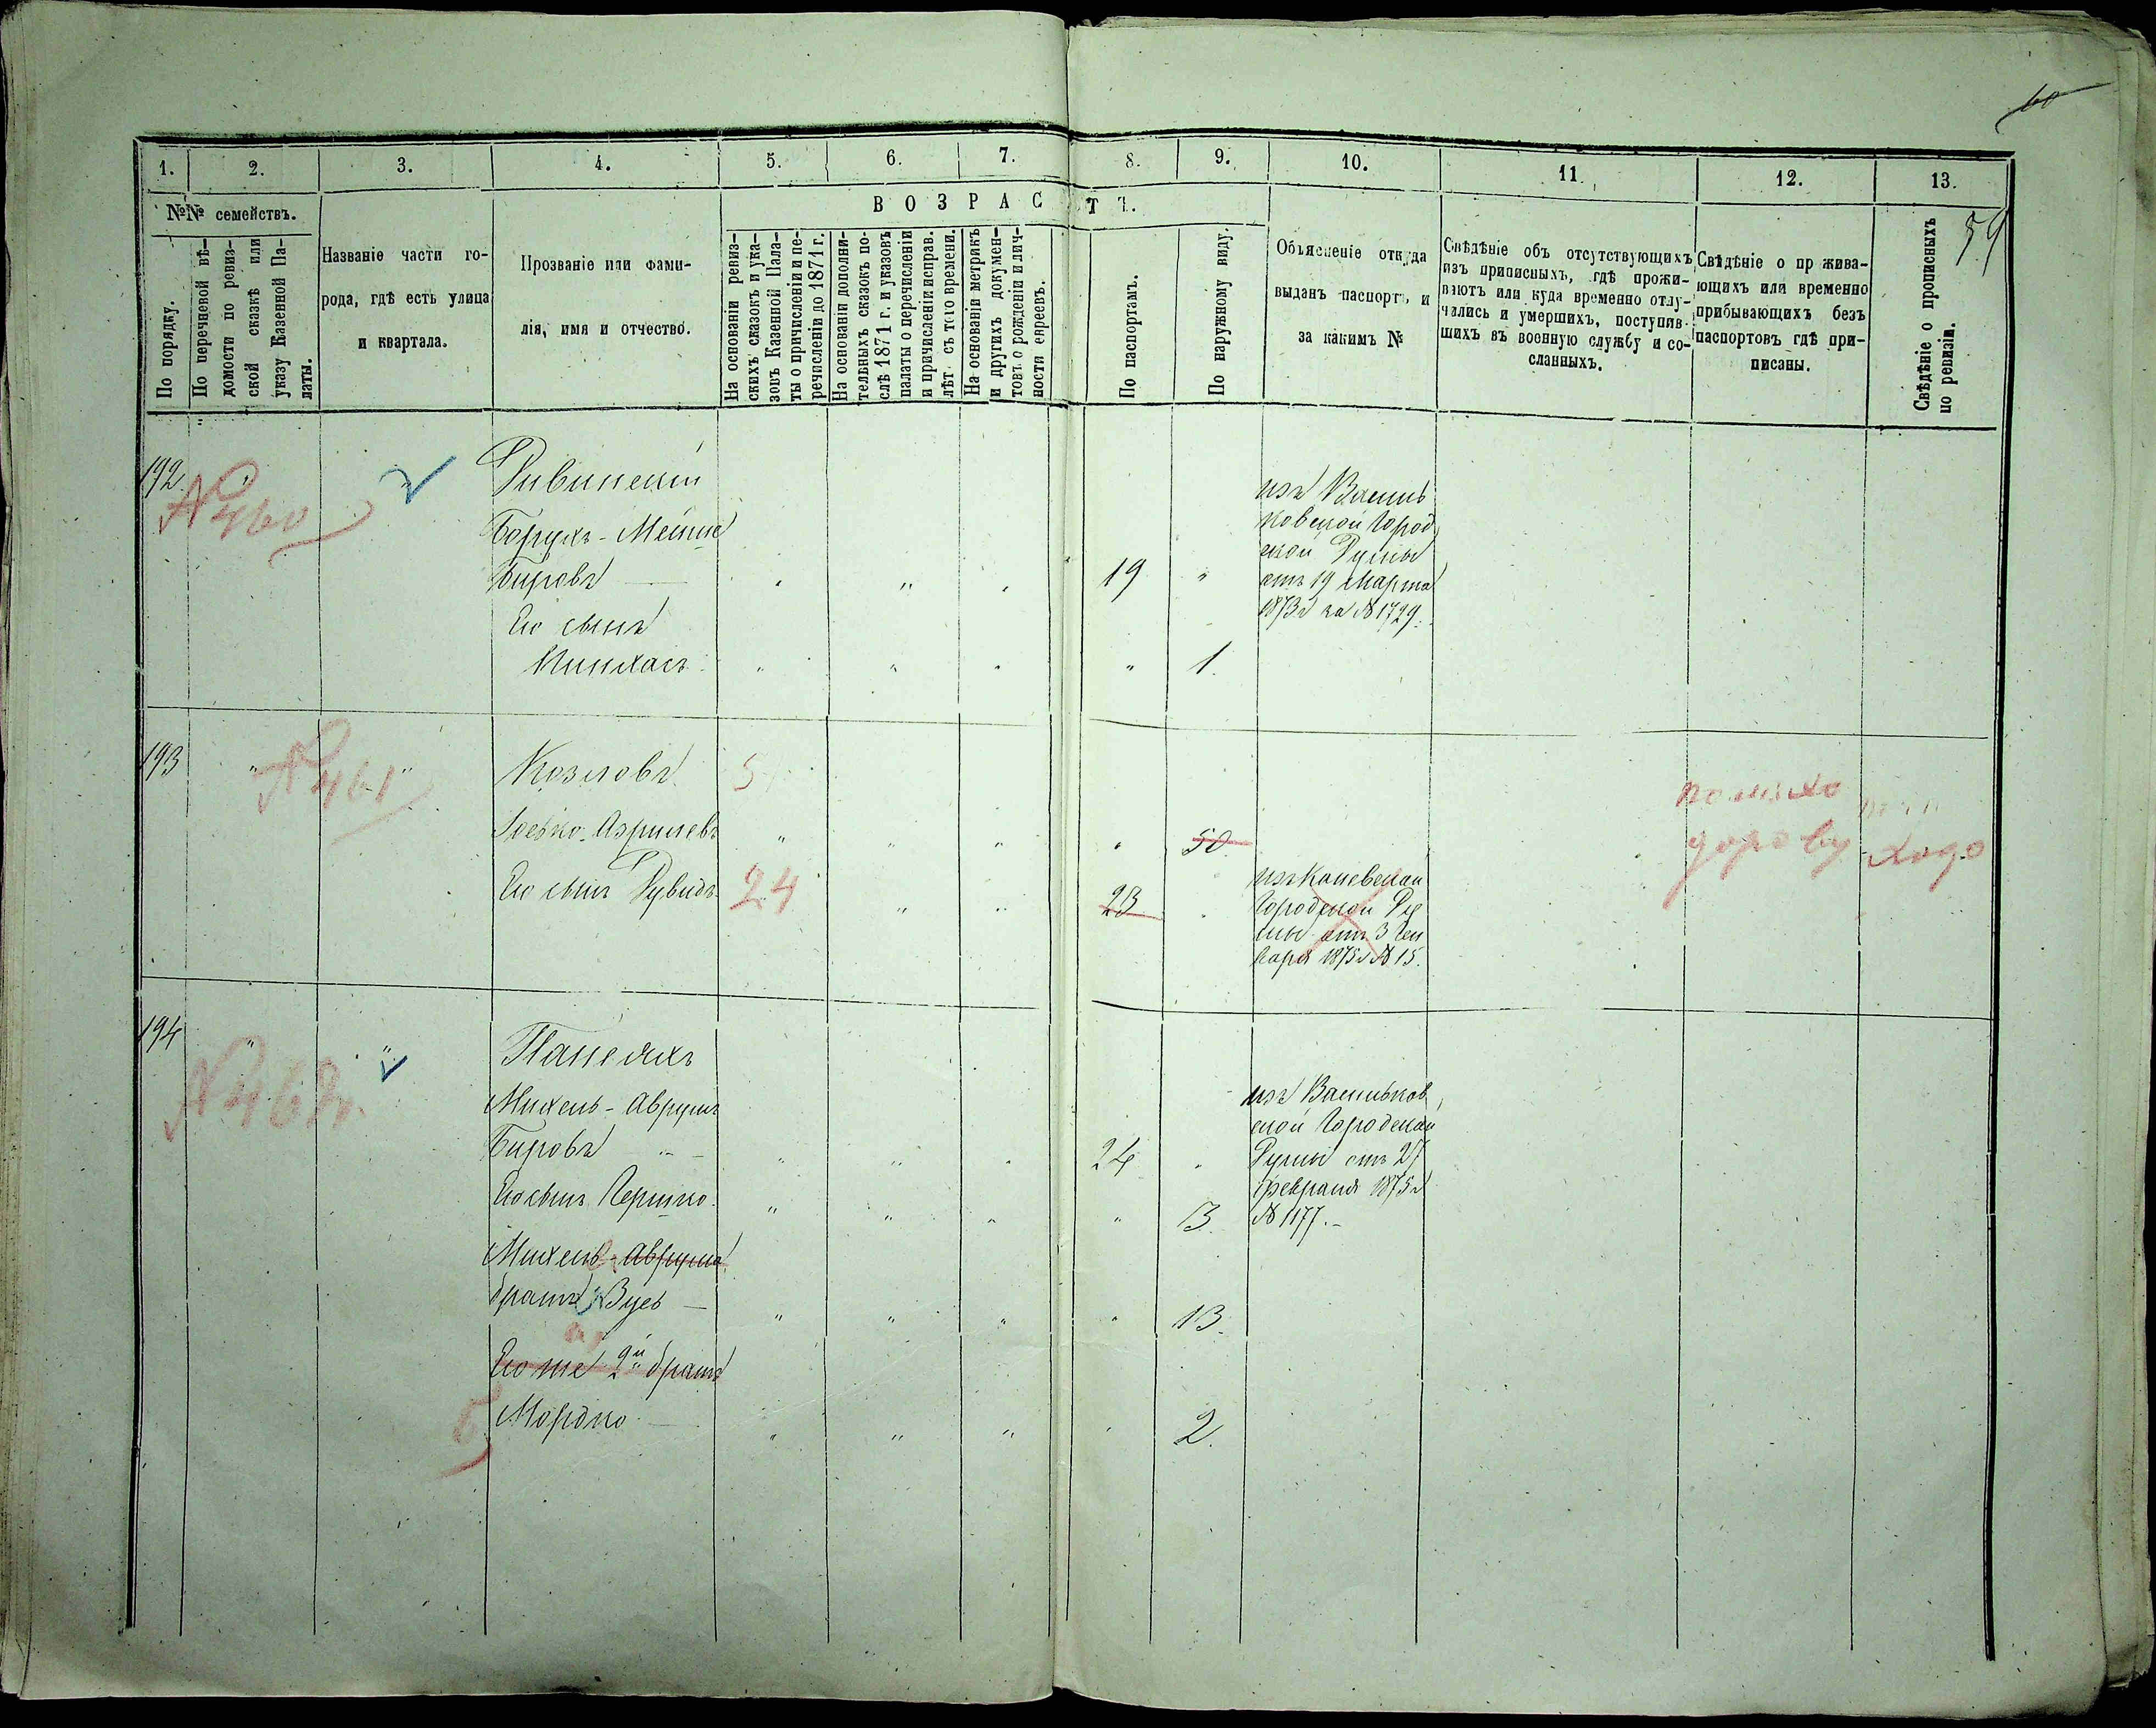 60
59
1. 2. 3. 4. 5. 6. 7. 8. 9. 10. 11. 12. 13.
№№ семействъ.
По порядку.
По перечневой вѣ-
домости по ревиз-
ской сказкѣ или
указу Казенной Па-
латы.
Названіе части го-
рода, гдѣ есть улица
и квартала.
Прозваніе или фами-
лія, имя и отчество.
ВОЗРАСТЪ.
На основаніи ревиз-
скихъ сказокъ и ука-
зовъ Казенной Пала-
ты о причисленіи и пе-
речисленіи до 1871 г.
На основаніи дополни-
тельныхъ сказокъ по-
слѣ 1871 г. и указовъ
палаты о перечисленіи
и причисленіи исправ.
лѣт съ того времени.
На основаніи метрикъ
и другихъ докумен-
товъ о рожденіи и лич-
ности евреевъ.
По паспортамъ.
По наружному виду.
Объясненіе откуда
выданъ паспортъ, и
за какимъ №
Свѣдѣніе объ отсутствующихъ
изъ приписныхъ, гдѣ прожи-
ваютъ или куда временно отлу-
чились и умершихъ, поступив-
шихъ въ военную службу и со-
сланныхъ.
Свѣдѣніе о прожива-
ющихъ или временно
прибывающихъ безъ
паспортовъ гдѣ при-
писаны.
Свѣдѣніе о прописныхъ
по ревизіи.
192
№ 460
Ривинскій
Борухъ-Мейше
Бировъ 19
Его сынъ
Пинхасъ 1.
изъ Василь
ковской Город
ской Думы
отъ 19 Марта
1873 г за № 1729.
193
№ 461
Козловъ 5
Азрилевъ 50
Его сынъ Рувидъ 24 23
изъ Каневской
Городской Ду
мы отъ 3 Ген
варя 1875 г № 15.
194
№ 462
Панедяхъ
Михель-Аврумъ
Бировъ 24
Его сынъ Гершко 3
Михель-Аврума
братъ Вуеь 13.
Его же 2й братъ
Мордко 2.
изъ Васильков
ской Городской
Думы отъ 27
февраля 1875 г
№ 1177.